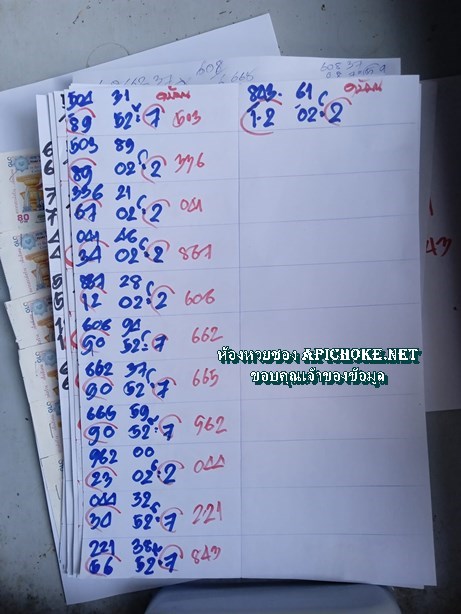 608
665
608 37
504 31
89 52 7 503
503 89
89 02 2 336
336 21
67 02 2 041
041 46
34 02 2 887
887 28
12 02 2 606
606 94
90 52 7 662
662 37
90 52 7 665
665 59
90 52 7 962
962 00
23 02 2 044
044 32
34 52 7 221
221 38
56 52 7 843
843 61
1-2 02 2
ห้องหวยซอง APICHOKE.NET
ขอบคุณเจ้าของข้อมูล